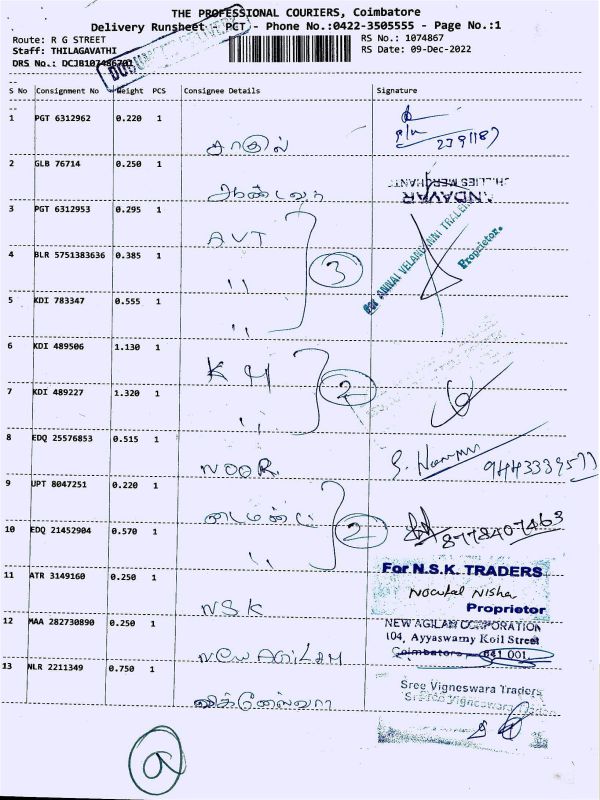 THE PROFESSIONAL COURIERS, Coimbatore
Delivery Runsheet - PCT - Phone No.:0422-3505555 - Page No.:1
Route: R G STREET
RS No.: 1074867
Staff: THILAGAVATHI
RS Date: 09-Dec-2022
DRS No.: DCJB107486701
S No Consignment No Weight PCS Consignee Details Signature
1 PGT 6312962 0.220 1
2 GLB 76714 0.250 1
ANDAVAR
3 PGT 6312953 0.295 1 A.V.T
For ANNAI VELANGANNI TRADERS
Proprietor.
4 BLR 5751383636 0.385 1 ,, 3
5 KDI 783347 0.555 1 ,,
6 KDI 489506 1.130 1 KM
7 KDI 489227 1.320 1 ,, 2
8 EDQ 25576853 0.515 1 NOOR
9 UPT 8047251 0.220 1
10 EDQ 21452904 0.570 1 ,, 2 8778407463
11 ATR 3149160 0.250 1 NSK
For N.S.K. TRADERS
Proprietor
12 MAA 282730890 0.250 1 New AGiLAM
NEW AGILAM CORPORATION
104, Ayyaswamy Koil Street
Coimbatore 641 001.
13 NLR 2211349 0.750 1 விக்னேஸ்வரா
Sree Vigneswara Traders